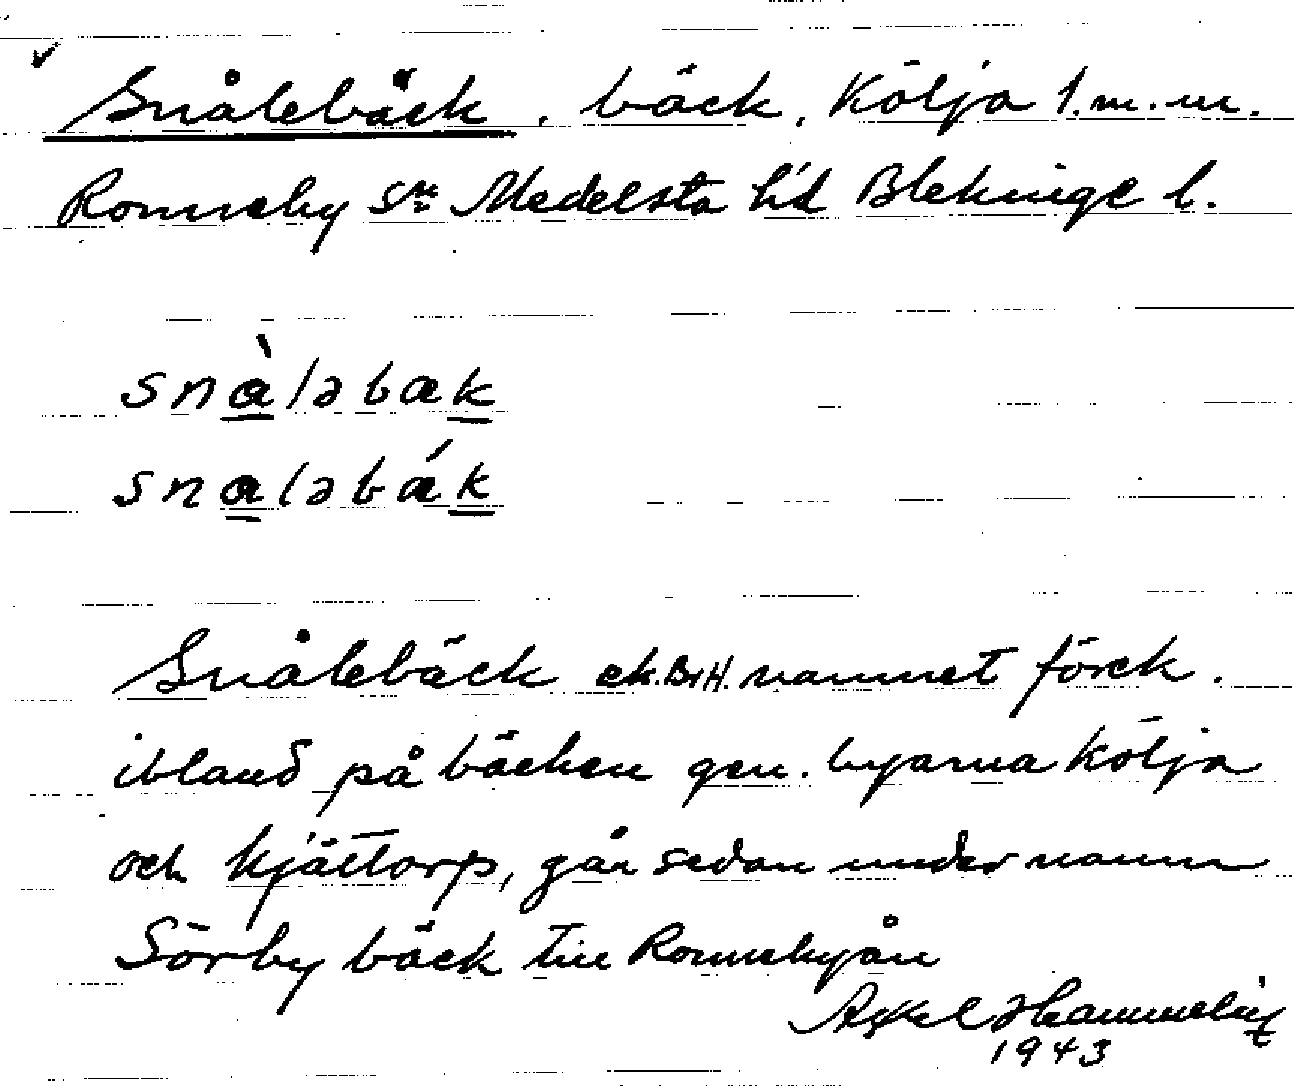 Snålebäck. bäck. Kölja l.m.m.
Ronneby sn Medelsta h'd Blekinge l.
snàləbæk
snaləbǽk
Snålebäck ek.BlH. namnet förek.
ibland på bäcken gen. byarna Kölja
och Kjättorp, går sedan under namn
Sörby bäck till Ronnebyån
Axel
1943